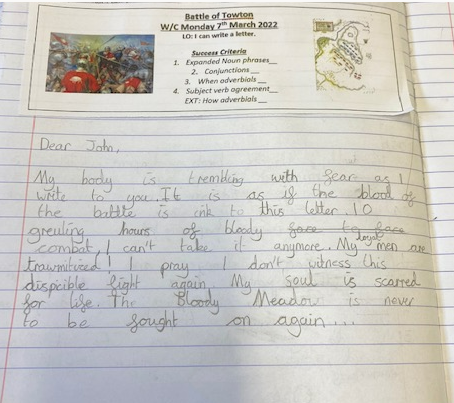 Battle of Towton
W/C Monday 7th March 2022
LO: I can write a letter.
Success Criteria
1. Expanded Noun phrases__
2. Conjunctions__
3. When adverbials__
4. Subject verb agreement__
EXT: How adverbials__
Dear John,
My body is trembling with fear as I
write to you. It is as if the blood of
the battle is ink to this letter. 10
greuling hours of bloody face to face
combat, I can't take it anymore. My loyal men are
trawmitized! I pray I don't witness this
dispicible fight again. My soul is scarred
for life. The Bloody Meadow is never
to be fought on again...